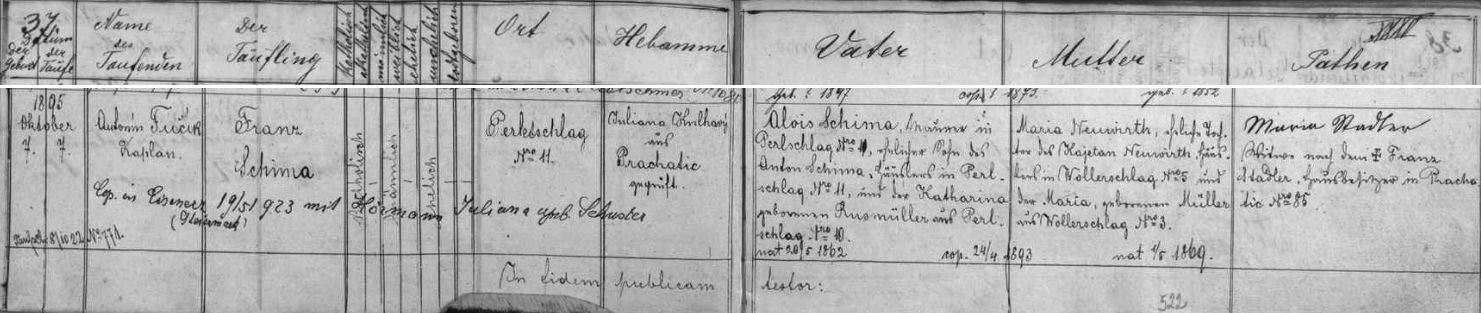 37
Datum
der Geburt
der Taufe
Name des Taufenden
Der Täufling
katholisch
akatholisch
männlich
weiblich
ehelich
unehelich
todtgeboren
Ort
Hebamme
Vater
Mutter
Pathen
geb. 1847
cop. 1873.
geb. 1852
1895
Oktober
7. 7.
Antonín Fučik
Kaplan.
Franz
Schima
Katholisch
männlich
ehelich
Perletschlag
Nro 11.
Juliana Kulhavý
aus
Prachatic
geprüft.
Alois Schima, Maurer in
Perlschlag Nro, ehelicher Sohn des
Anton Schima, Häuslers in Perl-
schlag Nro 11, und der Katharina
geborenen Rusmüller aus Perl-
schlag Nro 10.
nat 20/5 1862
cop. 24/4 1893
Maria Neuwirth, eheliche Toch-
ter des Kajetan Neuwirth, Häus-
lers in Wollerschlag Nro 5 und
der Maria, geborenen Müller
aus Wollerschlag Nro 3.
nat 1/5 1869.
Maria Stadler
Witwe nach dem Franz
Stadler, Hausbesitzer in Pracha
tic Nro 85
Cop. in Eisenerz 19/5 1923 mit Hörmann Juliana geb. Schuster
(Steiermark)
8/10 22 No 771.
In fidem publicam
testor:
522